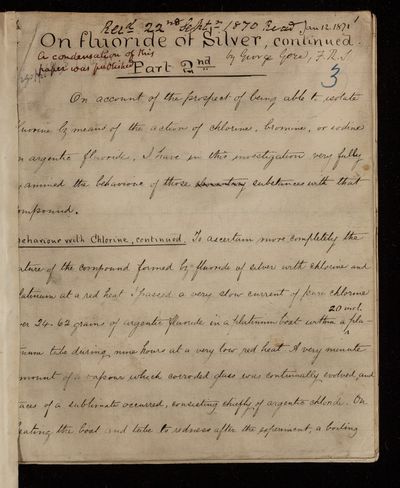 Recd. 22nd Septr. 1870 Read Jan 12. 1871
On fluoride of Silver, continued.
A condensation of this
paper was published
by George Gore, F.R.S.
Part 2nd
3
On account of the prospect of being able to isolate
luorine by means of the action of chlorine, bromine, or iodine
n argentic fluoride, I have in this investigation very fully
amined the behaviour of those substances with that
ompound.
ehaviour with Chlorine, continued. To ascertain more completely the
ature of the compound formed by fluoride of silver with chlorine and
latinum at a red heat I passed a very slow current of pure chlorine
20 inch
er 24.62 grains of argentic fluoride in a platinum boat within a pla-
num tube during nine hours at a very low red heat. A very minute
mount of a vapour which corroded glass was continually evolved, and
aces of a sublimate occurred, consisting chiefly of argentic chloride. On
eating the boat and tube to redness after the experiment, a boiling